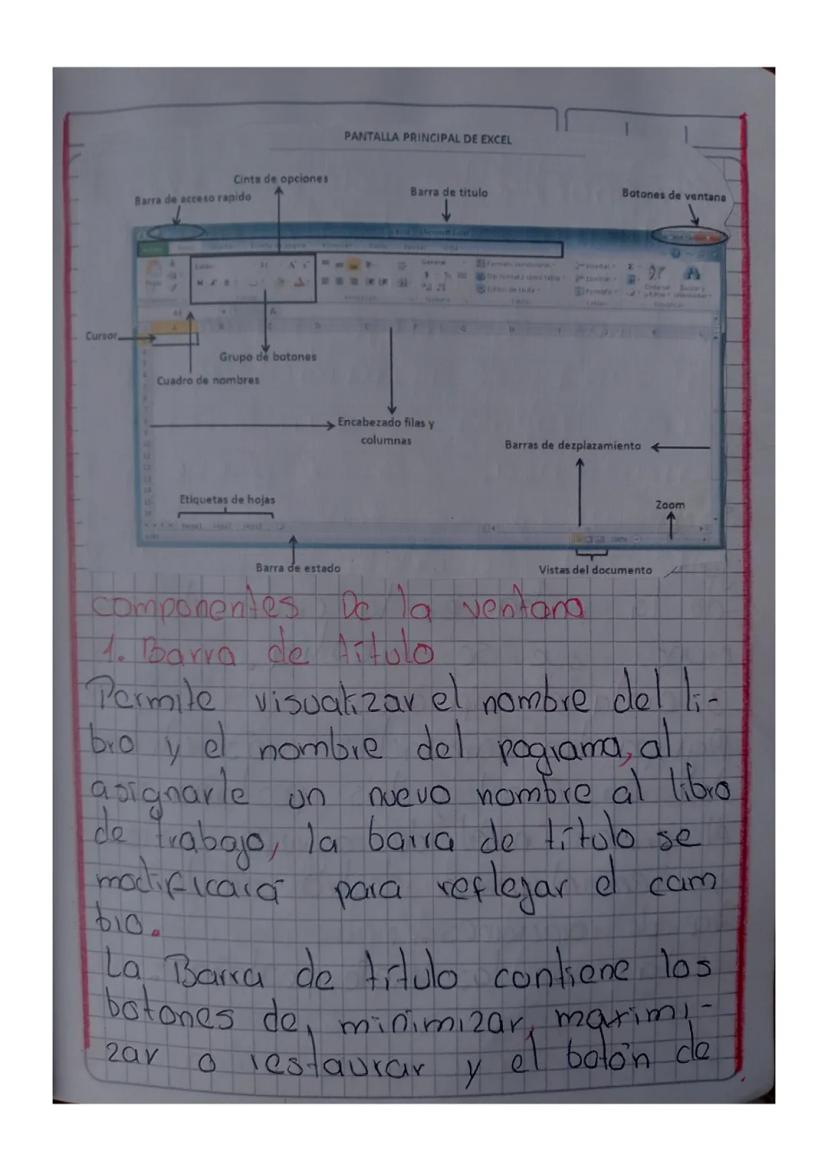 PANTALLA PRINCIPAL DE EXCEL
Cinta de opciones
Barra de acceso rapido
Barra de titulo
Botones de ventana
Cursor
Grupo de botones
Cuadro de nombres
Encabezado filas y
columnas
Barras de dezplazamiento
Etiquetas de hojas
Zoom
Barra de estado
Vistas del documento
componentes De la ventana
1. Barra de título
Permite visualizar el nombre del li-
bro y el nombre del pograma, al
asignarle un nuevo nombre al libro
de trabajo, la barra de título se
modificará para reflejar el cam
bio.
La Barra de título contiene los
botones de, minimizar, maximi-
zar o restaurar y el botón de